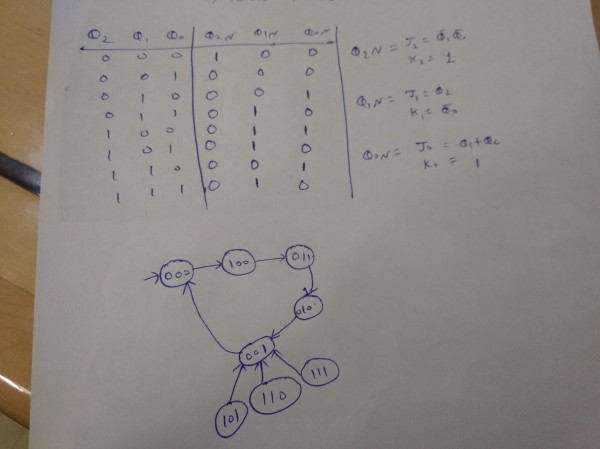 Q2 Q1 Q0 Q2N Q1N Q0N
0 0 0 1 0 0
0 0 1 0 0 0
0 1 0 0 0 1
0 1 1 0 1 0
1 0 0 0 1 1
1 0 1 0 1 0
1 1 0 0 0 1
1 1 1 0 1 0
Q2N = J2 = Q̄1Q̄0
K2 = 1
Q1N = J1 = Q2
K1 = Q̄0
Q0N = J0 = Q1+Q2
K0 = 1
000 100 011
010
001
101 110 111